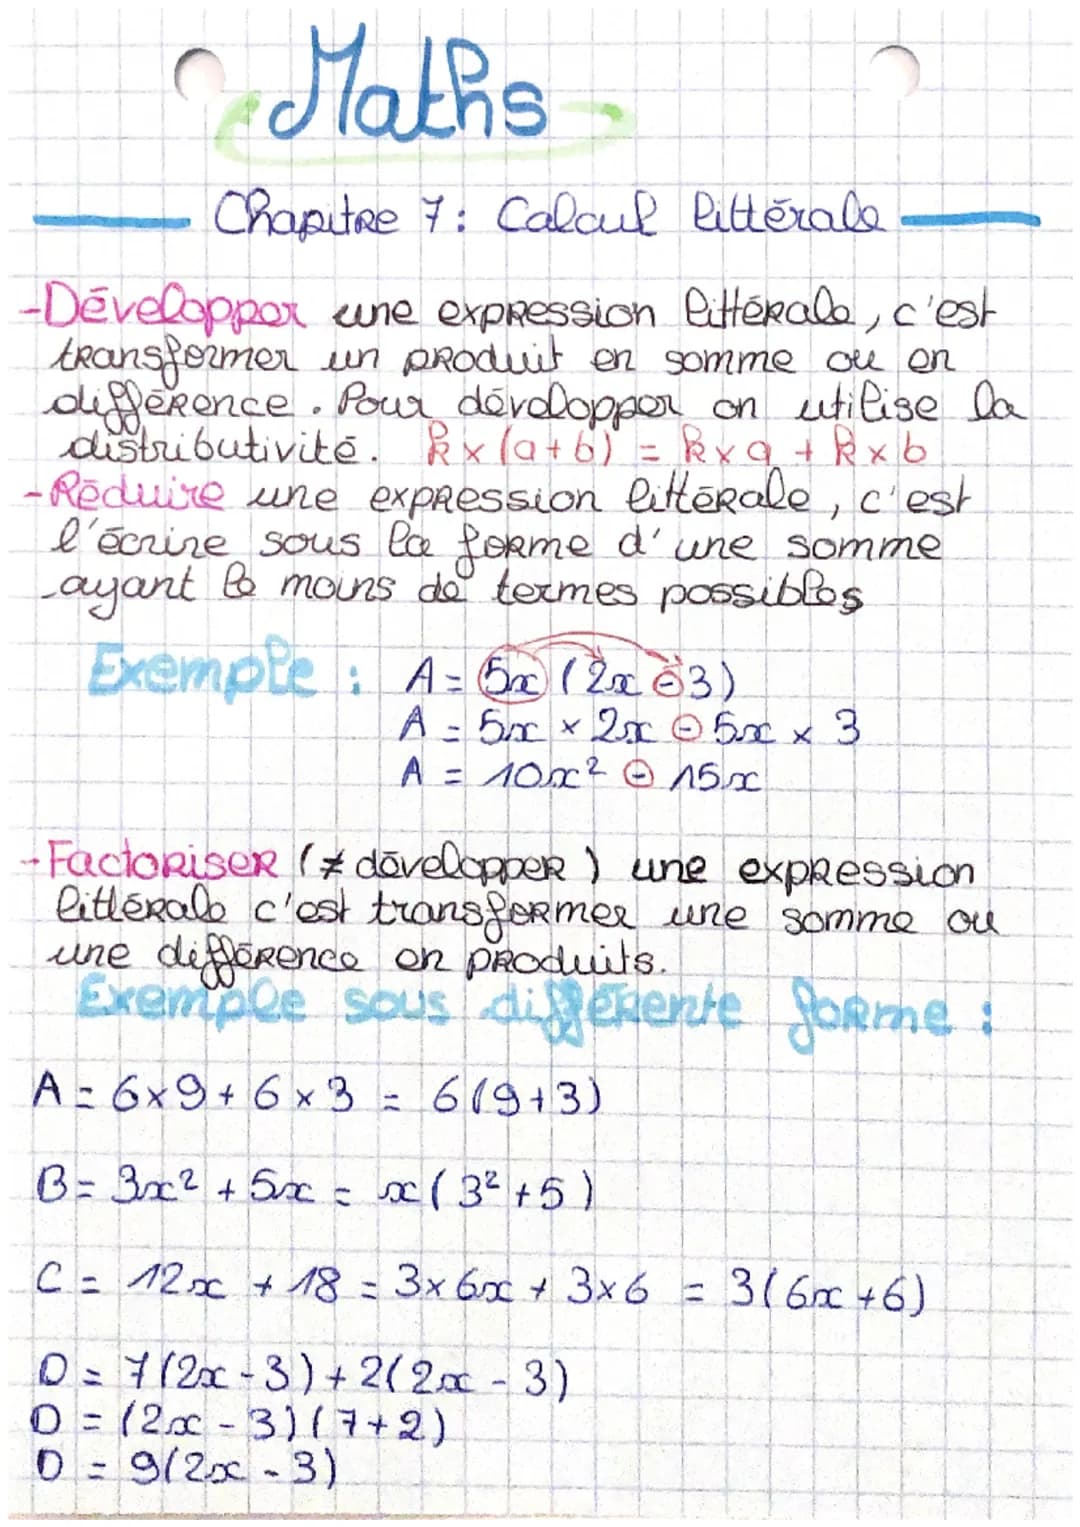 Maths
Chapitre 7: Calcul littérale
-Développer une expression littérale, c'est
transformer un produit en somme ou en
différence. Pour développer on utilise la
distributivité. k×(a+b) = k×a + k×b
-Réduire une expression littérale, c'est
l'écrire sous la forme d'une somme
ayant le moins de termes possibles
Exemple : A = 5x (2x - 3)
A = 5x × 2x - 5x × 3
A = 10x² - 15x
-Factoriser (≠ développer) une expression
littérale c'est transformer une somme ou
une différence en produits.
Exemple sous différente forme :
A = 6×9 + 6×3 = 6(9+3)
B = 3x² + 5x = x(3²+5)
C = 12x + 18 = 3×6x + 3×6 = 3(6x+6)
D = 7(2x-3)+2(2x-3)
D = (2x-3)(7+2)
D = 9(2x-3)